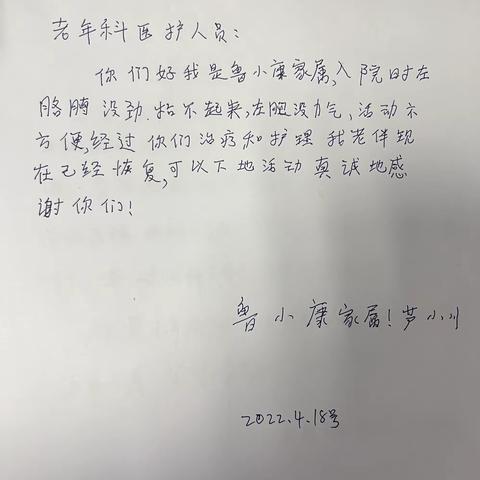 老年科医护人员:
你们好我是鲁小康家属,入院时左
胳膊没劲.抬不起来,左腿没力气,活动不
方便,经过你们治疗和护理 我老伴现
在已经恢复,可以下地活动 真诚地感
谢你们!
鲁小康家属!芦小川
2022.4.18号